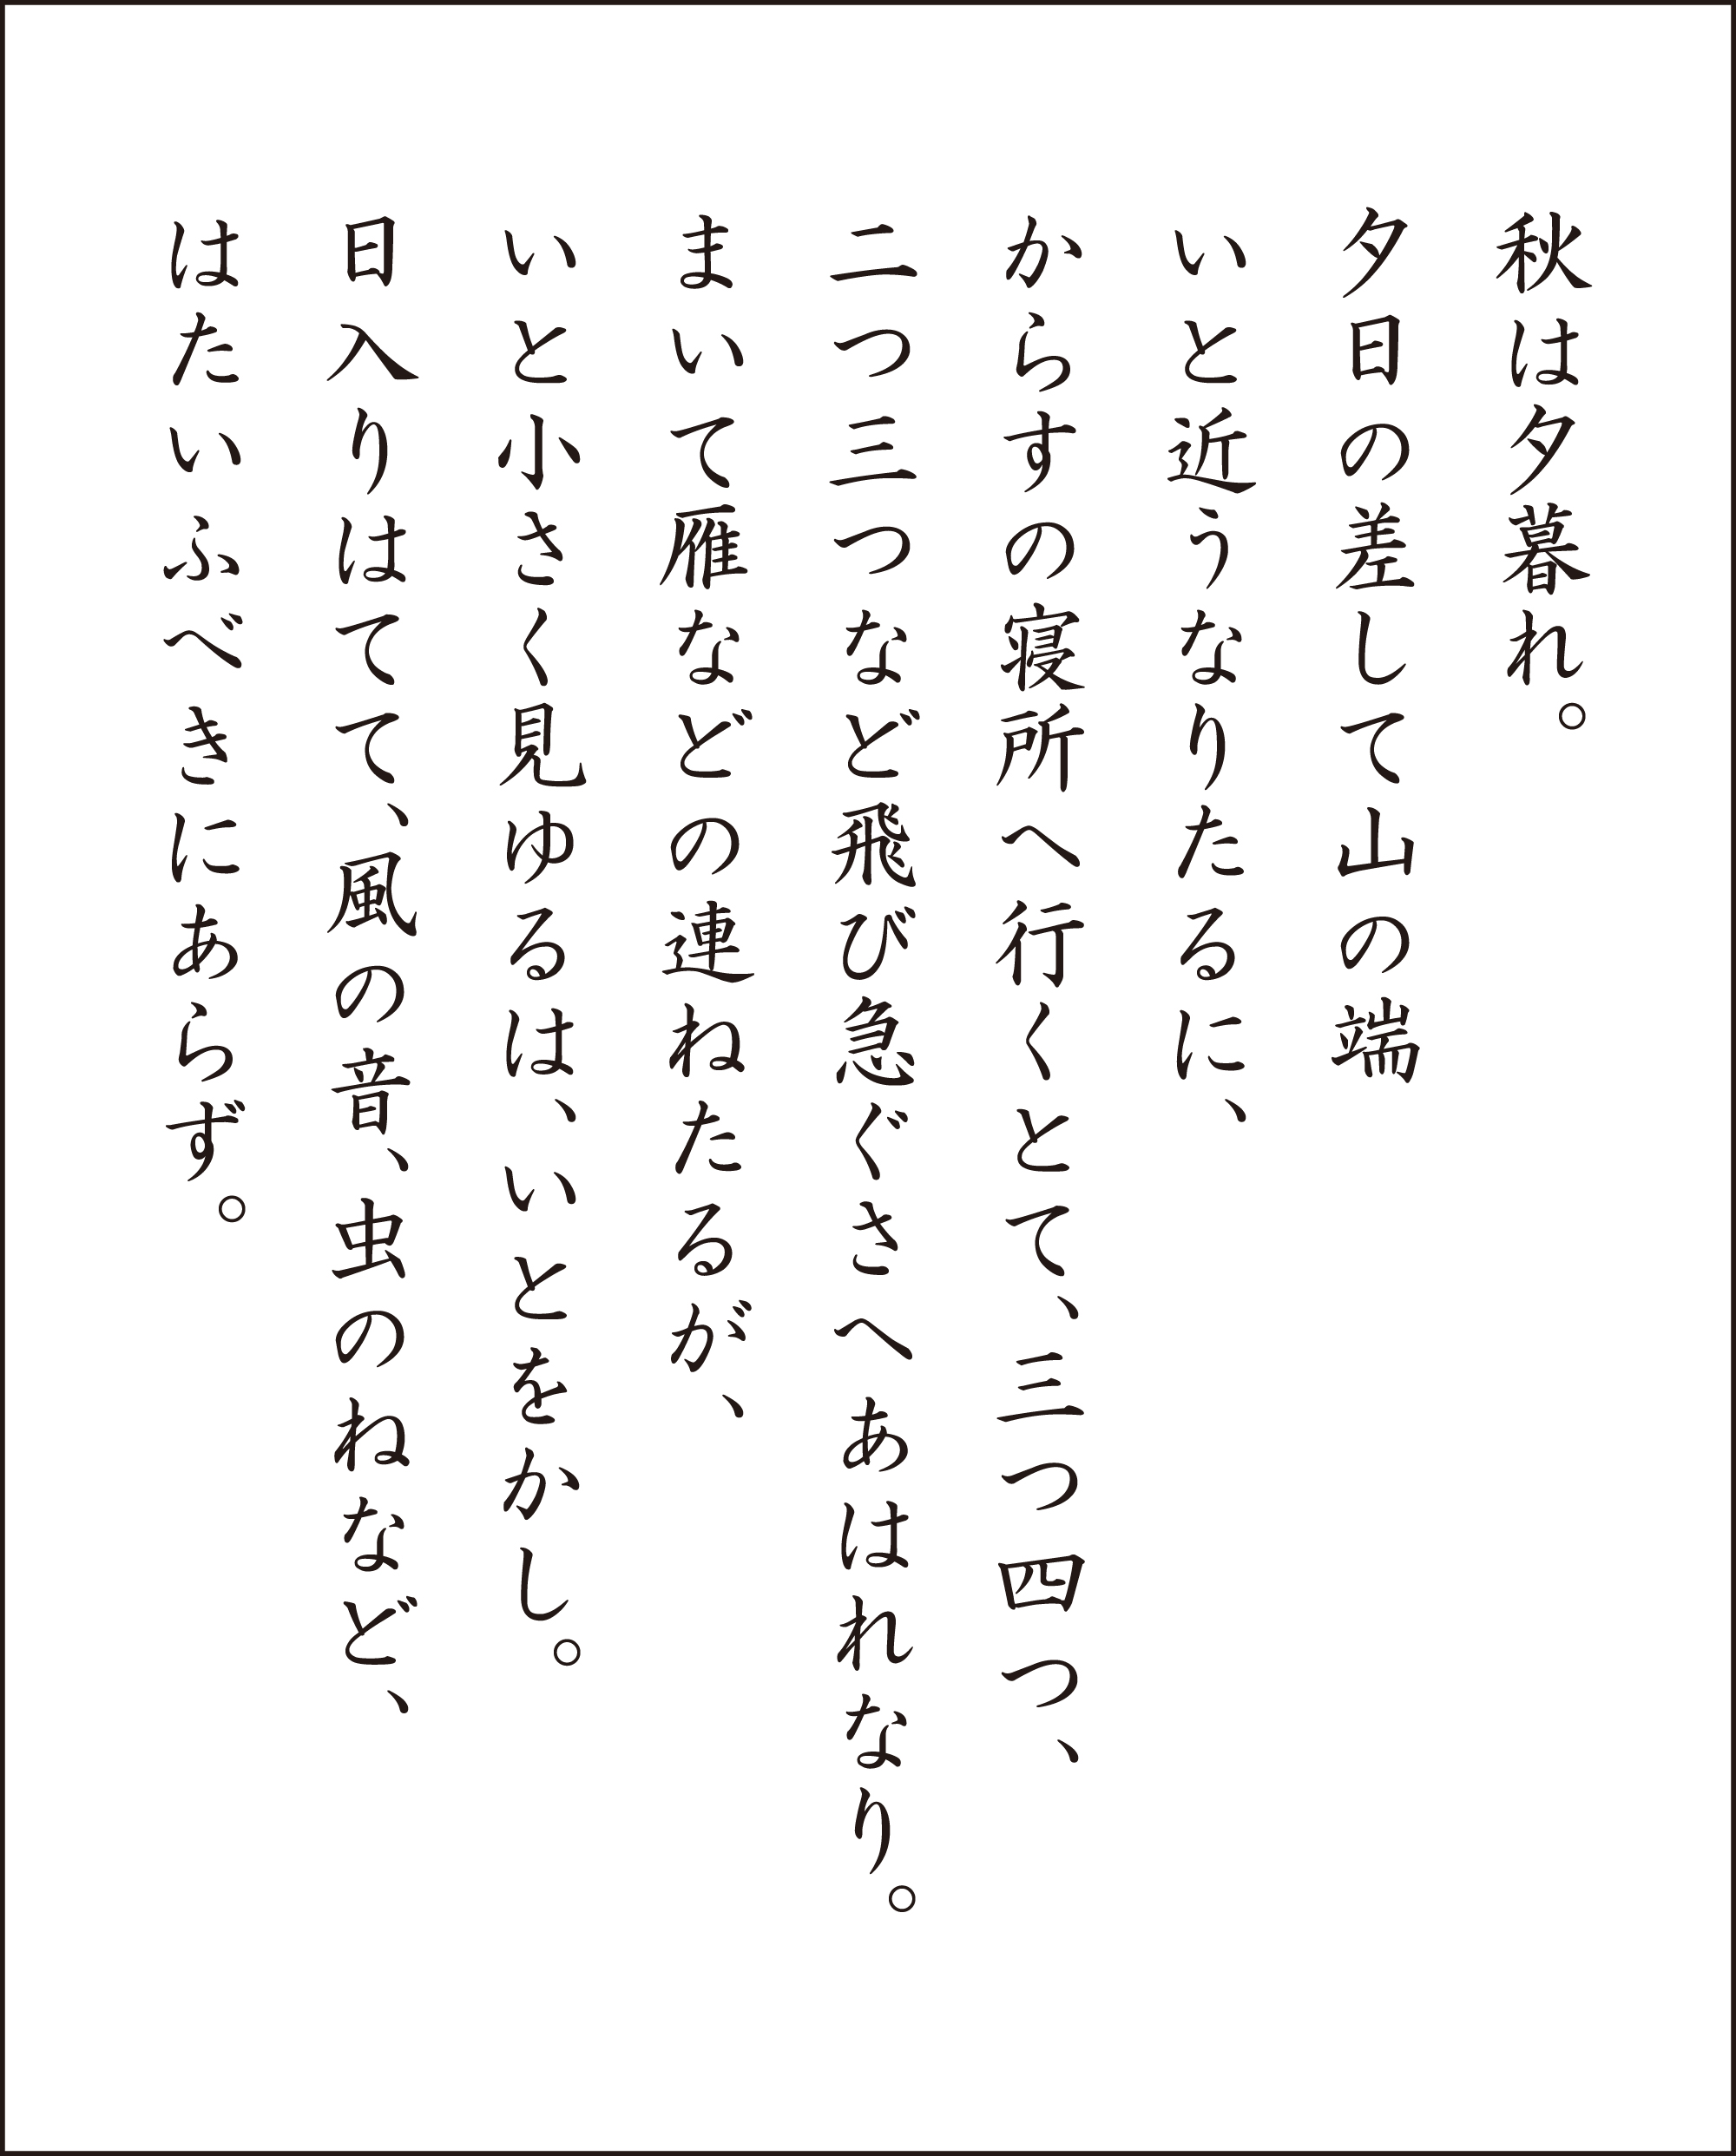 秋は夕暮れ。
夕日の差して山の端
いと近うなりたるに、
からすの寝所へ行くとて、三つ四つ、
二つ三つなど飛び急ぐさへあはれなり。
まいて雁などの連ねたるが、
いと小さく見ゆるは、いとをかし。
日入りはてて、風の音、虫のねなど、
はたいふべきにあらず。